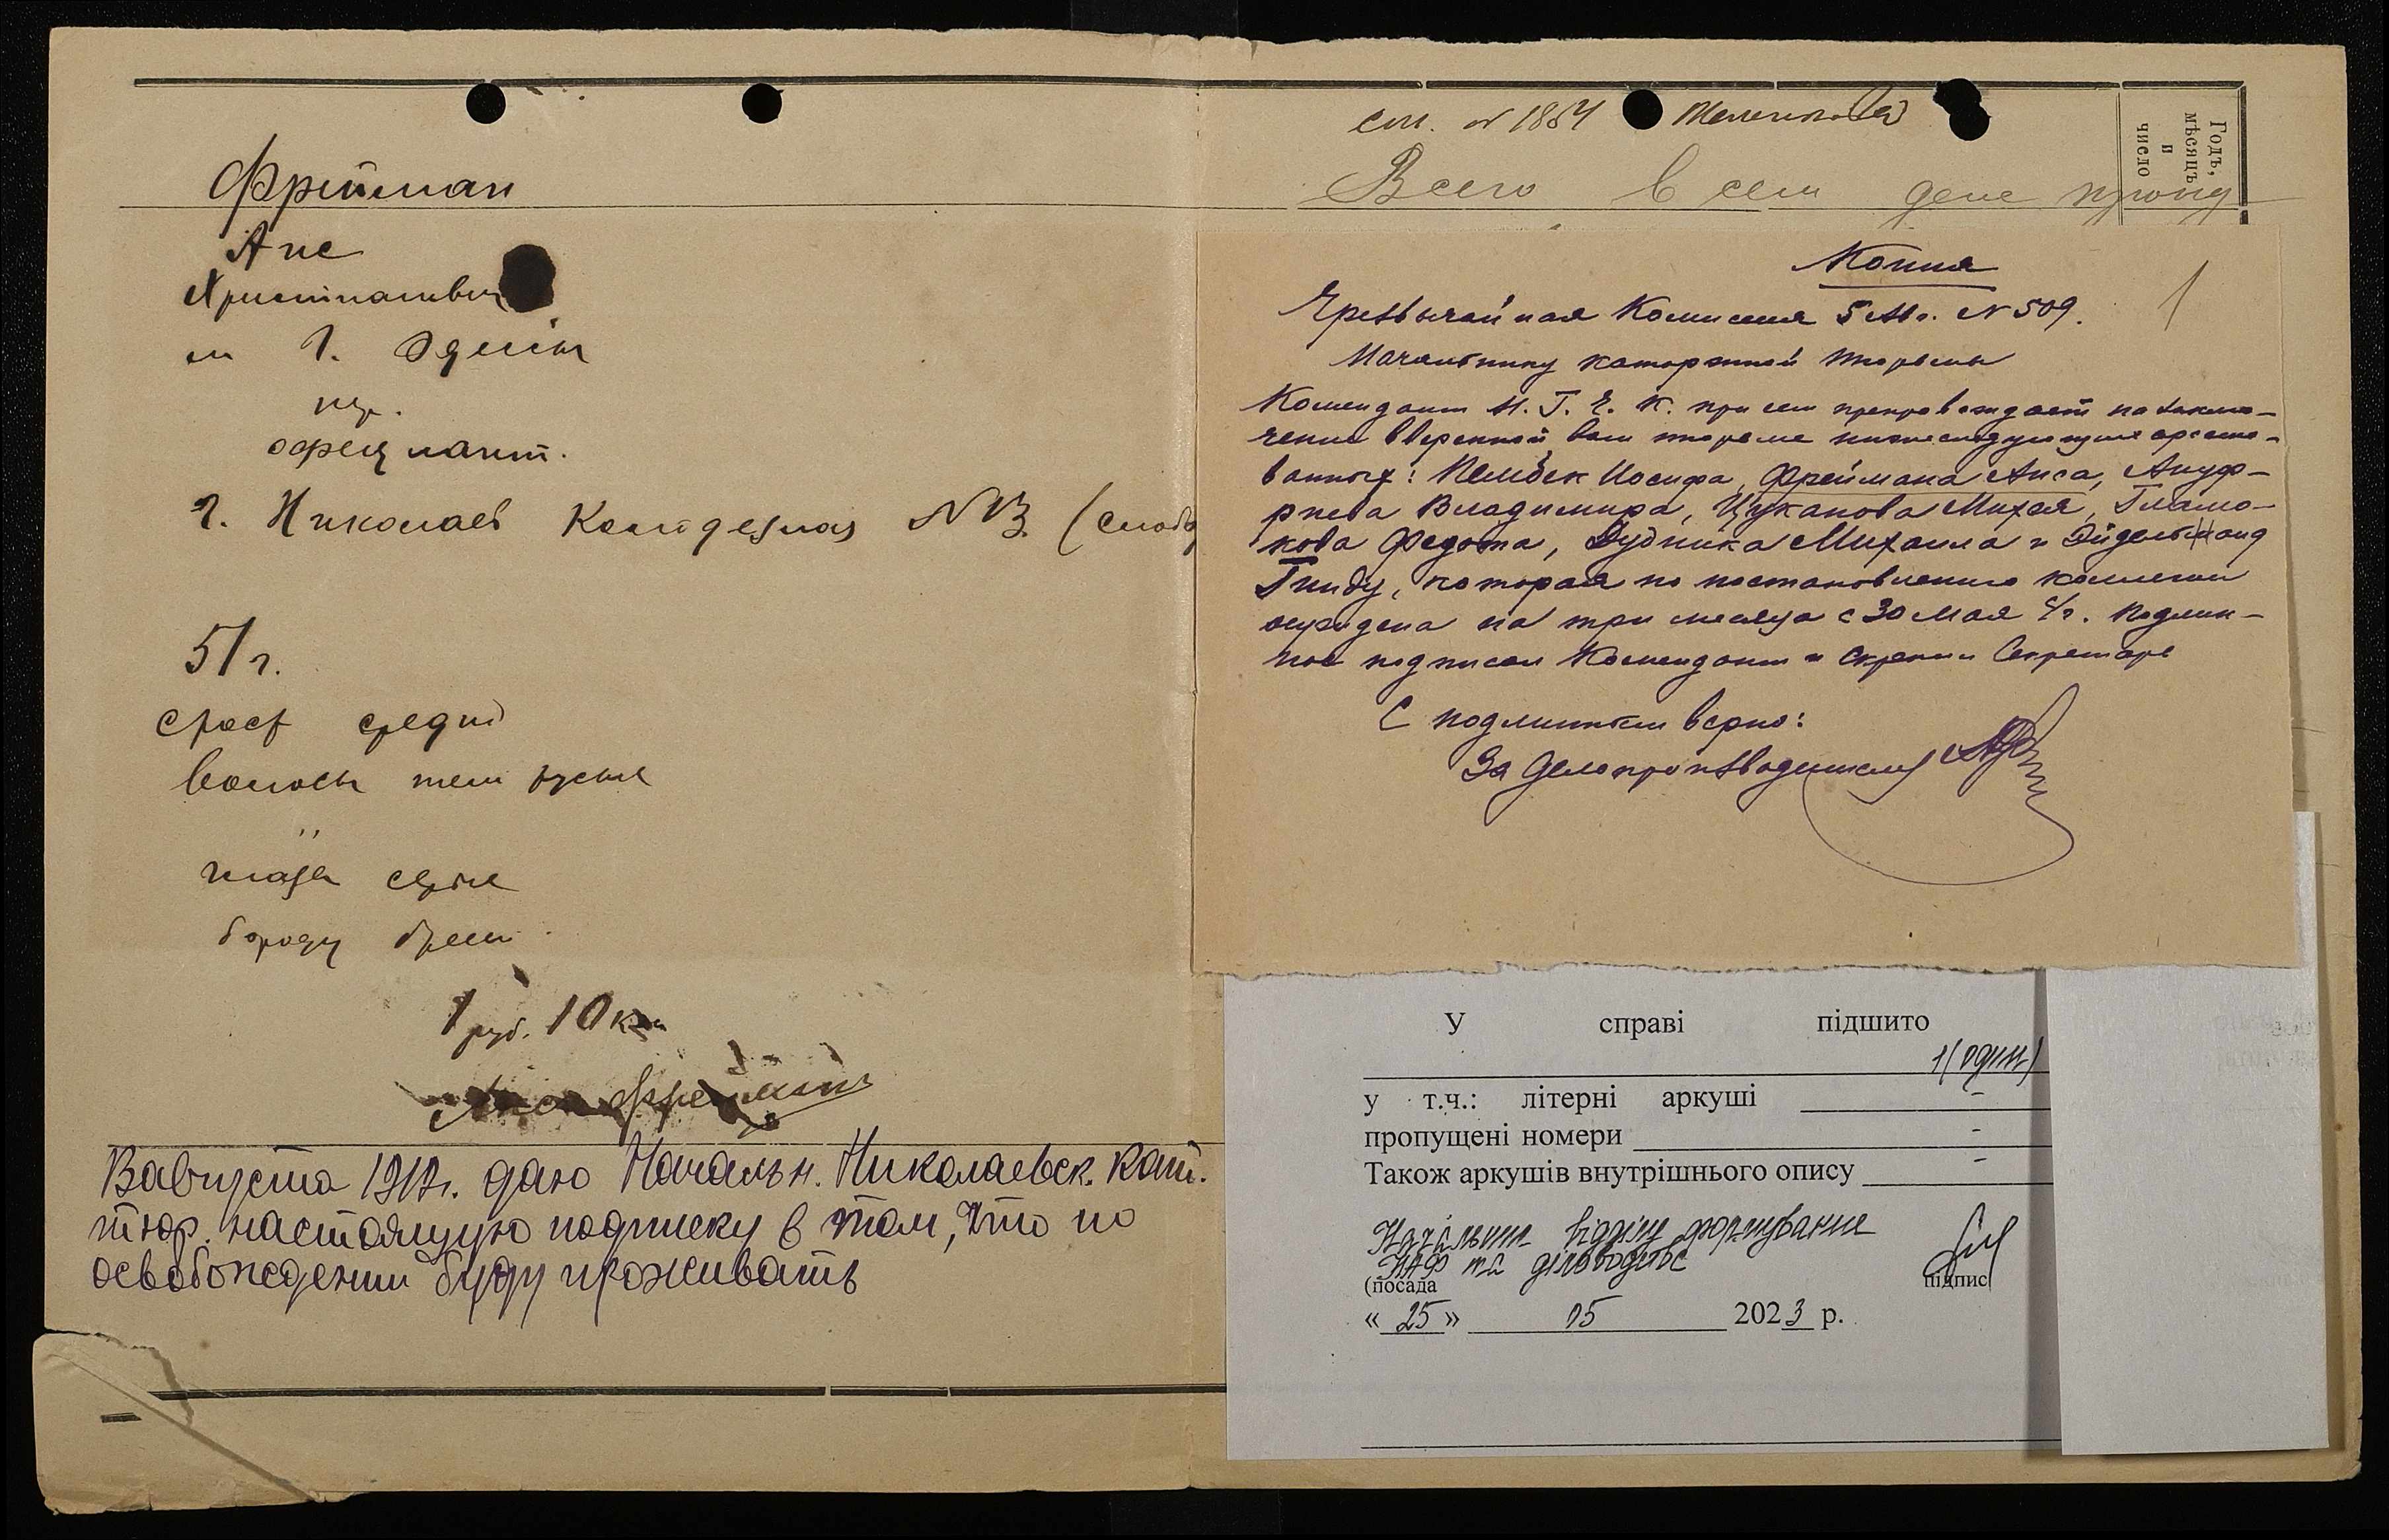 Фрейман
Анс
Христианович
м г. Одессы
пр.
официант.
г. Николаев Колодезная №13. (слоб
51 г.
рост средн
волосы тем русые
глаза серые
бороду бреет
1 руб. 10 к
Анс Фрейман
августа 1919 г. даю Начальн. Николаевск. Кат.
тюр. настоящую подписку в том, что по
освобождении буду проживать
ст. № 1864
Всего в сем деле пронум
Годъ,
мѣсяцъ
и
число
Копия
1
Чрезвычайная Комиссия 5 Авг. № 509.
Начальнику каторжной тюрьмы
Комендант Н. Г. Ч. К. при сем препровождает на заклю-
чение вверенной вам тюрьме нижеследующих аресто-
ванных: Иосифа, Фреймана Анса, Ануф-
риева Владимира, Цуканова Михея,
кова Федота, Дудника Михаила и
Гинду, которая по постановлению коллегии
осуждена на три месяца с 30 мая с/г. Подлин-
ное подписал Комендант и скрепил Секретарь
С подлинным верно:
За Делопроизводителя
У справі підшито
1 (один)
у т.ч.: літерні аркуші -
пропущені номери -
Також аркушів внутрішнього опису -
Начальник відділу формування
НАФ та діловодства
(посада підпис
« 25 » 05 2023 р.